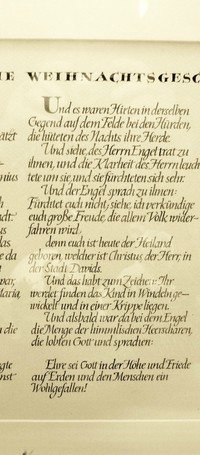 IE WEIHNACHTSGESC
Und es waren Hirten in derselben
Gegend auf dem Felde bei den Hürden,
die hüteten des Nachts ihre Herde.
Und siehe, des Herrn Engel trat zu
ihnen, und die Klarheit des Herrn leuch
tete um sie; und sie fürchteten sich sehr.
Und der Engel sprach zu ihnen:
Fürchtet euch nicht; siehe, ich verkündige
euch große Freude, die allem Volk wider-
fahren wird;
denn euch ist heute der Heiland
geboren, welcher ist Christus, der Herr, in
der Stadt Davids.
Und das habt zum Zeichen: Ihr
werdet finden das Kind in Windeln ge-
wickelt und in einer Krippe liegen.
Und alsbald war da bei dem Engel
die Menge der himmlischen Heerscharen,
die lobten Gott und sprachen:
Ehre sei Gott in der Höhe und Friede
auf Erden und den Menschen ein
Wohlgefallen!